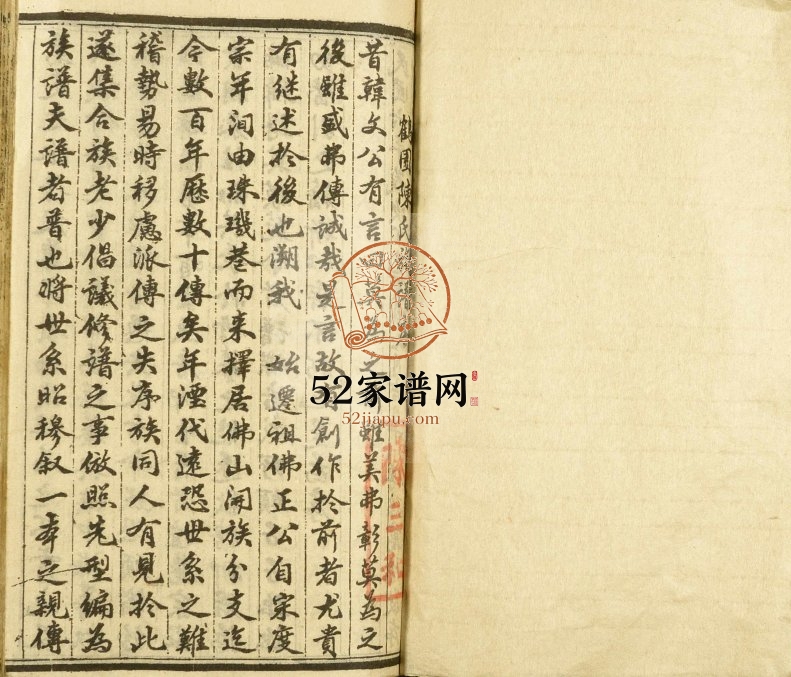 鶴園陳氏族譜
昔韓文公有言莫為之前雖美弗彰莫為之
後雖盛弗傳誠哉是言故有創作於前者尤貴
有继述於後也溯我 始遷祖佛正公自宋度
宗年间由珠璣巷而来擇居佛山開族分支迄
今數百年歷數十傳矣年湮代遠恐世系之難
稽勢易時移慮派傳之失序族同人有見於此
遂集合族老少倡議修譜之事倣照先型編為
族譜夫譜者普也将世系昭穆叙一夲之親傳
52家谱网
52jiapu.com